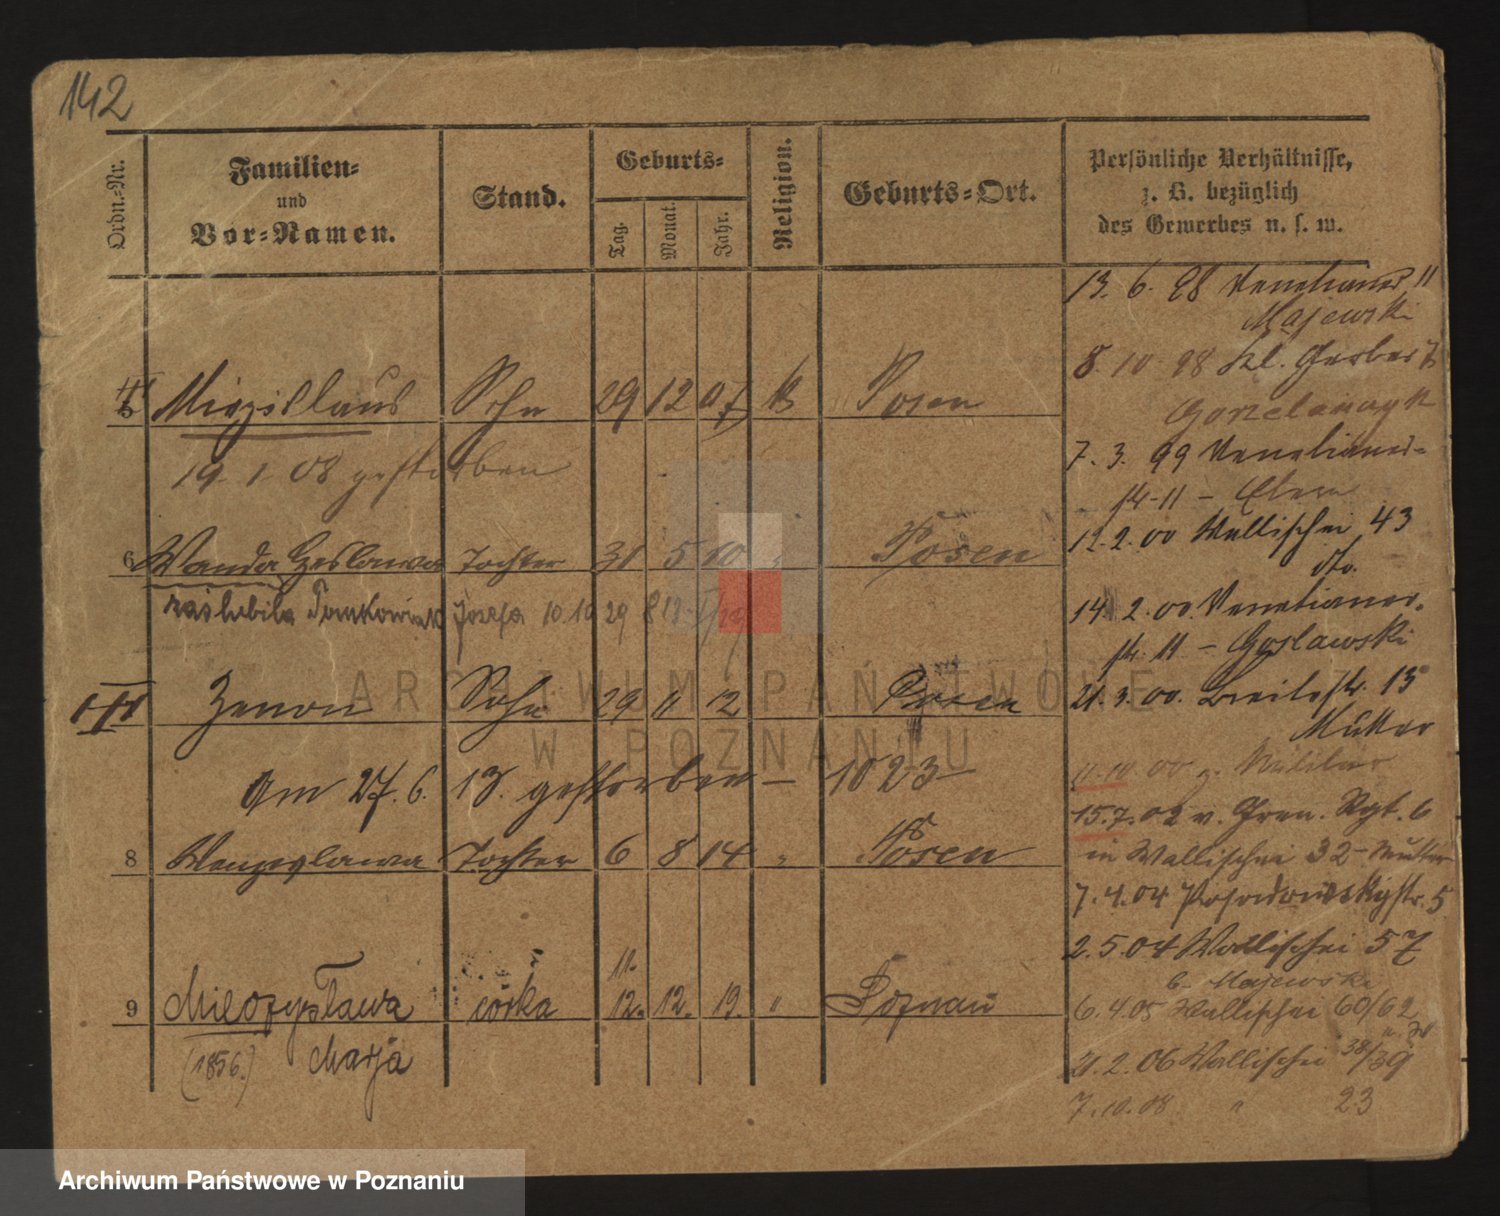 142
Ordn.-Nr.
Familien-
und
Vor-Namen.
Stand.
Geburts-
Tag.
Monat.
Jahr.
Religion.
Geburts-Ort.
Persönliche Verhältnisse,
z. B. bezüglich
des Gewerbes u. s. w.
5 Miezislaus Sohn 29 12 07 k Posen
19. 1. 08 gestorben
6 Wanda Czeslawa Tochter 31 5 10 " Posen
zaślubiła Tomkowiak Józefa 10.10 29
Zenon Sohn 29 11 12 Posen
Am 27. 6. 13. gestorben — 1023
8 Wenzeslawa Tochter 6 8 14 " Posen
11.
9 Mieczysława córka 12. 12. 19. " Poznań
(1856.) Marja
13. 6. 98 Venetianer 11
Majewski
8. 10 98 Kl. Gerber 7
Gorzelanczyk
7. 3. 99 Venetianer-
str 11 – Eltern
12. 2. 00 Wallischei 43
dto.
14. 2. 00. Venetianer-
str. 11 – Goslawski
21. 3. 00. Breitestr. 13
Mutter
11. 10 00 z. Militär
15. 7. 02 v. Gren. Rgt. 6
in Wallischei 32 – Mutter
7. 4. 04 Posadowskystr. 5
2. 5. 04 Wallischei 57
b. Majewski
6. 4. 05 Wallischei 60/62
2. 06 Wallischei 38/39
7. 10. 08 " 23
ARCHIWUM PAŃSTWOWE
W POZNANIU
Archiwum Państwowe w Poznaniu